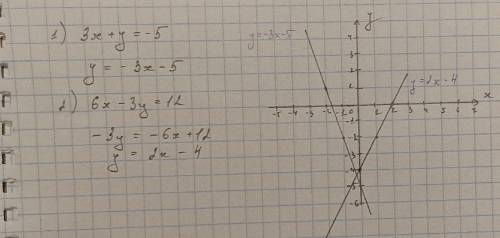 1) 3x + y = -5
y = -3x - 5
2) 6x - 3y = 12
-3y = -6x + 12
y = 2x - 4
y
y = -3x - 5
y = 2x - 4
x
-5 -4 -3 -2 -1 0 1 2 3 4 5 6 7
4
3
2
1
-1
-2
-3
-4
-5
-6